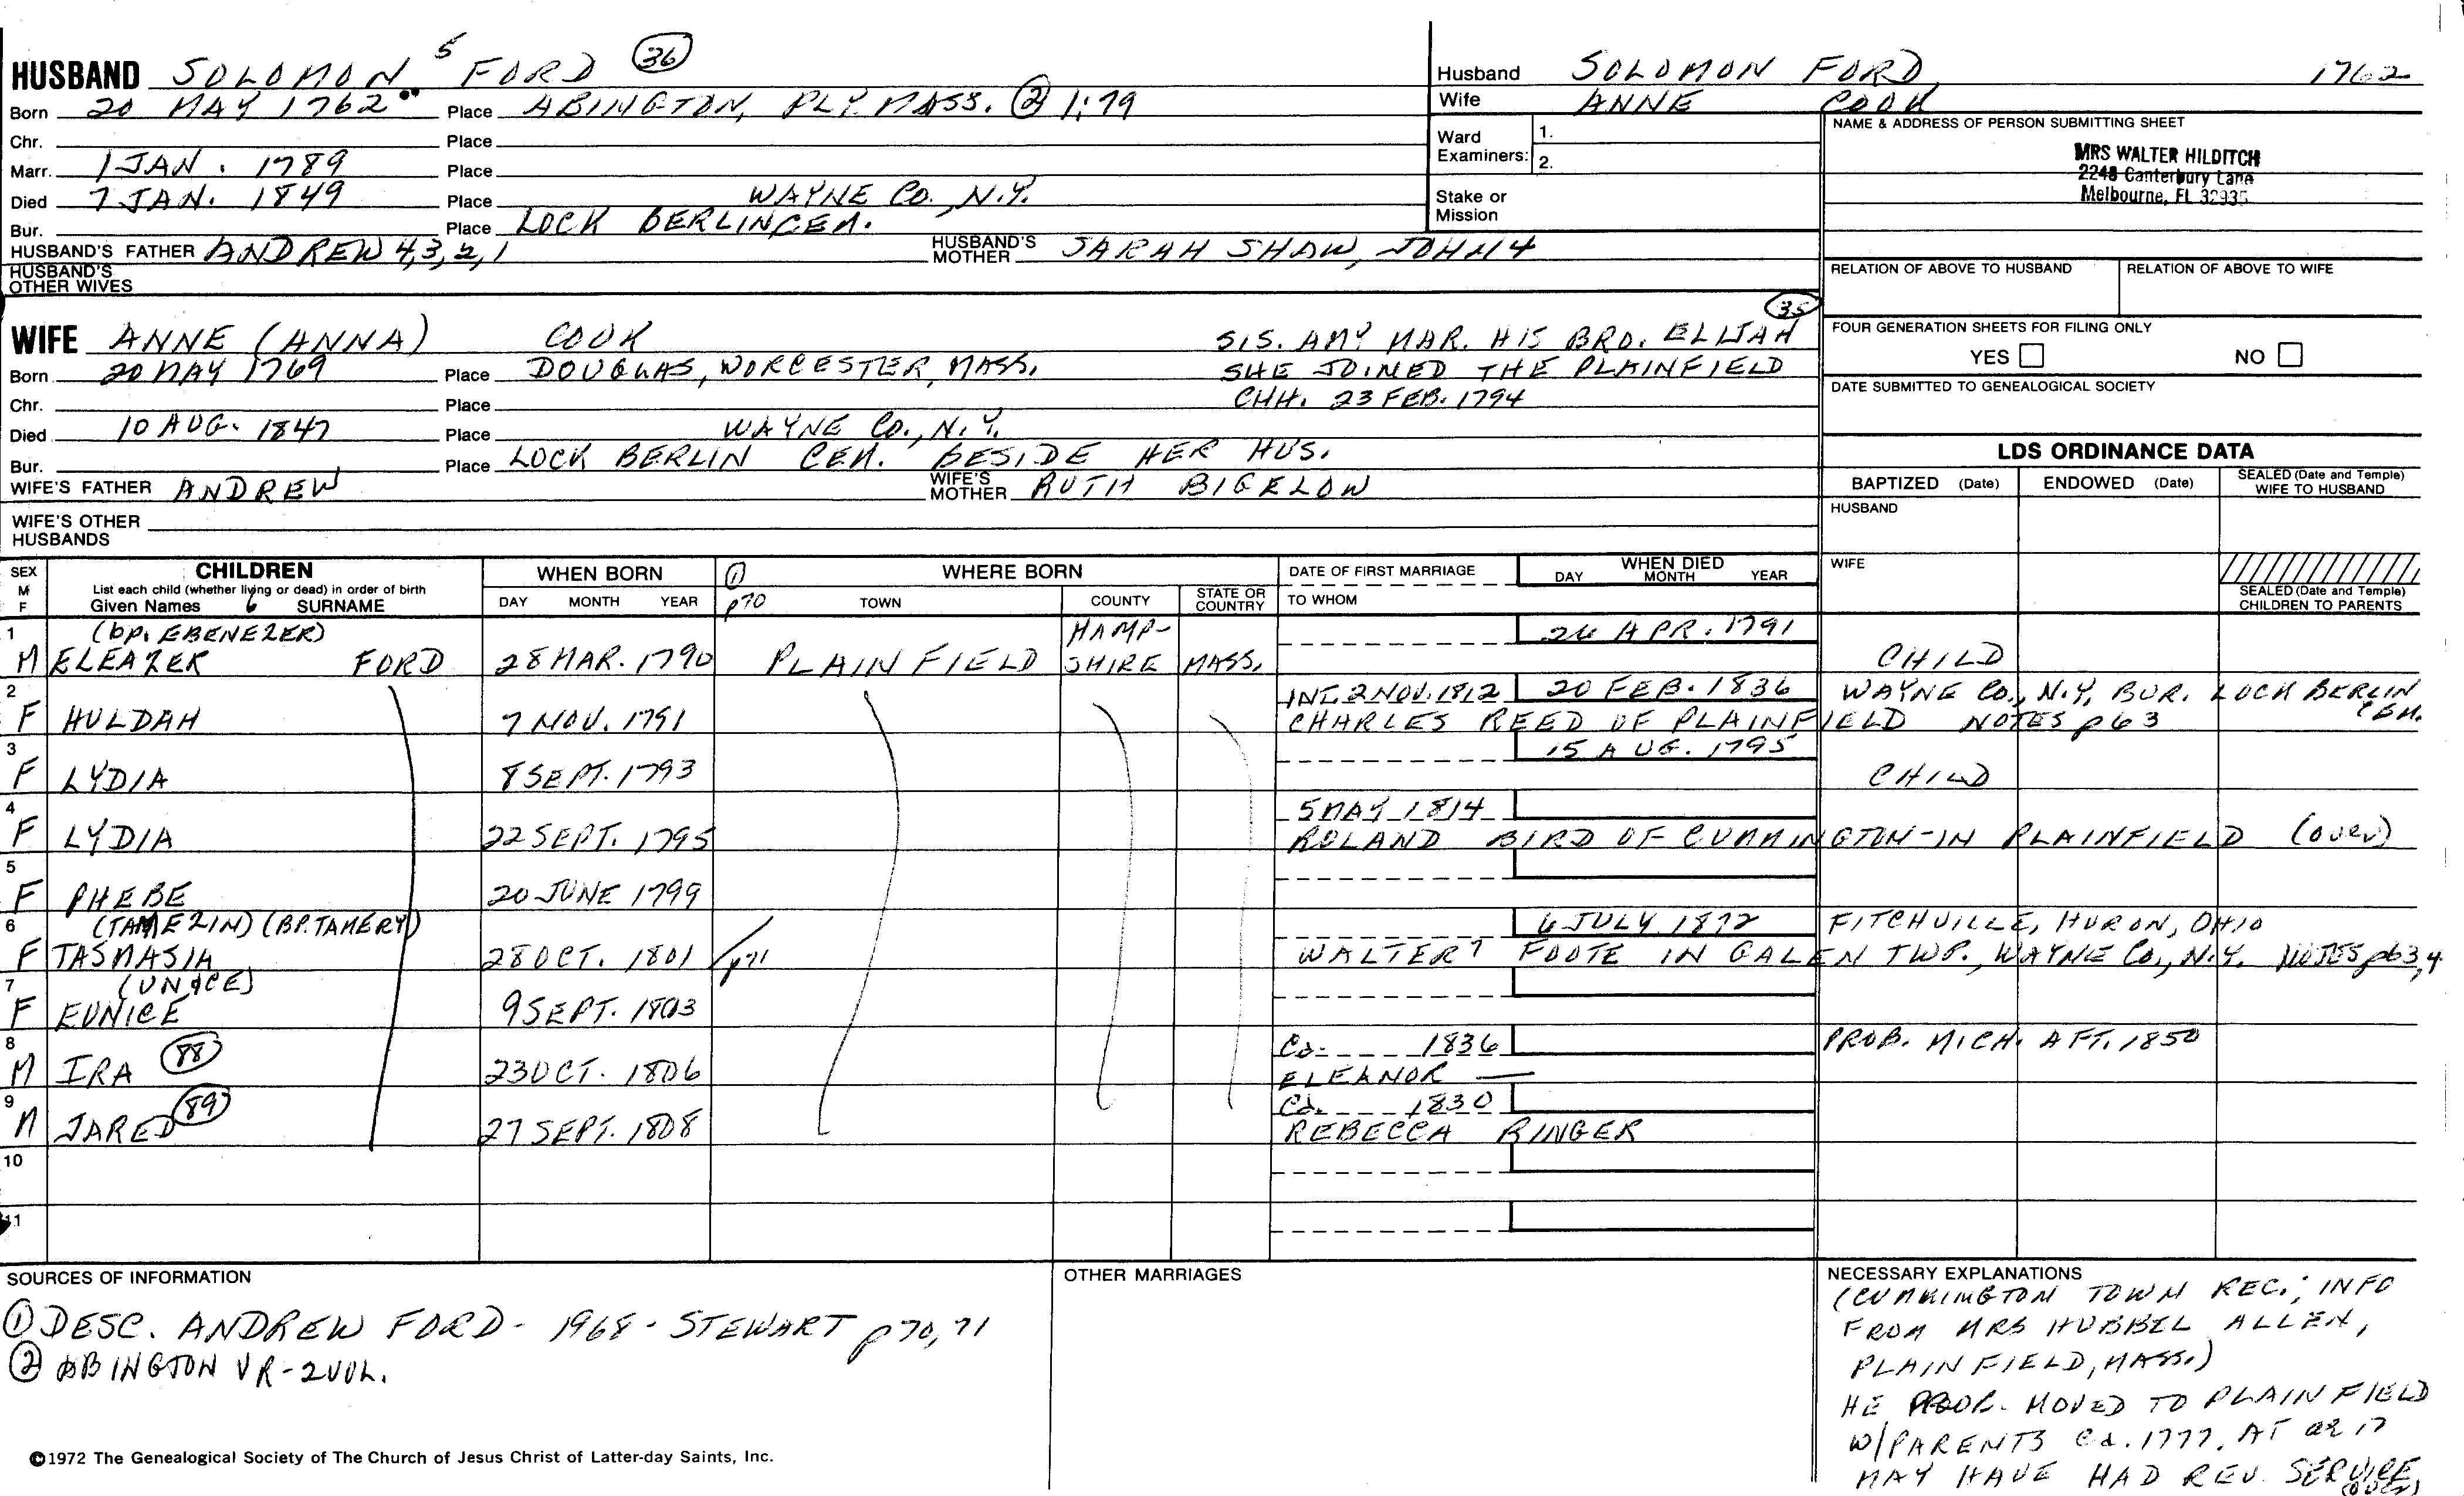 HUSBAND SOLOMON 5 FORD (36)
Born 20 MAY 1762 Place ABINGTON, PLY. MASS. (2) 1:79
Chr. Place
Marr. 1 JAN. 1789 Place
Died 7 JAN. 1849 Place WAYNE CO., N.Y.
Bur. Place LOCK BERLIN CEM.
HUSBAND'S FATHER ANDREW 4,3,2,1 HUSBAND'S MOTHER SARAH SHAW, JOHN 4
HUSBAND'S OTHER WIVES
Husband SOLOMON FORD 1762
Wife ANNE COOK
Ward Examiners: 1.
2.
Stake or Mission
NAME & ADDRESS OF PERSON SUBMITTING SHEET
MRS WALTER HILDITCH
2248 Canterbury Lane
Melbourne, FL 32935
RELATION OF ABOVE TO HUSBAND RELATION OF ABOVE TO WIFE
FOUR GENERATION SHEETS FOR FILING ONLY
YES NO
DATE SUBMITTED TO GENEALOGICAL SOCIETY
WIFE ANNE (ANNA) COOK SIS. AMY MAR. HIS BRO. ELIJAH (35)
Born 20 MAY 1769 Place DOUGLAS, WORCESTER, MASS. SHE JOINED THE PLAINFIELD
Chr. Place CHH. 23 FEB. 1794
Died 10 AUG. 1847 Place WAYNE CO., N.Y.
Bur. Place LOCK BERLIN CEM. BESIDE HER HUS.
WIFE'S FATHER ANDREW WIFE'S MOTHER RUTH BIGELOW
WIFE'S OTHER HUSBANDS
LDS ORDINANCE DATA
BAPTIZED (Date) ENDOWED (Date) SEALED (Date and Temple) WIFE TO HUSBAND
HUSBAND
WIFE
SEALED (Date and Temple) CHILDREN TO PARENTS
SEX M F
CHILDREN
List each child (whether living or dead) in order of birth
Given Names 6 SURNAME
WHEN BORN
DAY MONTH YEAR
(1) p70
WHERE BORN
TOWN COUNTY STATE OR COUNTRY
DATE OF FIRST MARRIAGE
TO WHOM
WHEN DIED
DAY MONTH YEAR
1 (bp. EBENEZER) HAMP- 26 APR. 1791
M ELEAZER FORD 28 MAR. 1790 PLAINFIELD SHIRE MASS. CHILD
2 INT. 2 NOV. 1812 20 FEB. 1836 WAYNE CO., N.Y. BUR. LOCK BERLIN CEM.
F HULDAH 7 NOV. 1791 CHARLES REED OF PLAINFIELD NOTES p63
3 15 AUG. 1795
F LYDIA 8 SEPT. 1793 CHILD
4 5 MAY 1814
F LYDIA 22 SEPT. 1795 ROLAND BIRD OF CUMMINGTON-IN PLAINFIELD (over)
5
F PHEBE 20 JUNE 1799
6 (TAMEZIN) (BP. TAMERY) 6 JULY 1872 FITCHVILLE, HURON, OHIO
F TASMASIA 28 OCT. 1801 p71 WALTER 7 FOOTE IN GALEN TWP., WAYNE CO., N.Y. NOTES p63,4
7 (UNICE)
F EUNICE 9 SEPT. 1803
8 Ca. 1836 PROB. MICH. AFT. 1850
M IRA (88) 23 OCT. 1806 ELEANOR —
9 Ca. 1830
M JARED (89) 27 SEPT. 1808 REBECCA RINGER
10
11
SOURCES OF INFORMATION
(1) DESC. ANDREW FORD - 1968 - STEWART p70, 71
(2) ABINGTON VR - 2 VOL.
OTHER MARRIAGES
NECESSARY EXPLANATIONS
(CUMMINGTON TOWN REC.; INFO
FROM MRS HUBBEL ALLEN,
PLAINFIELD, MASS.)
HE PROB. MOVED TO PLAINFIELD
W/PARENTS Ca. 1777, AT 17
MAY HAVE HAD REV. SERVICE,
(over)
©1972 The Genealogical Society of The Church of Jesus Christ of Latter-day Saints, Inc.